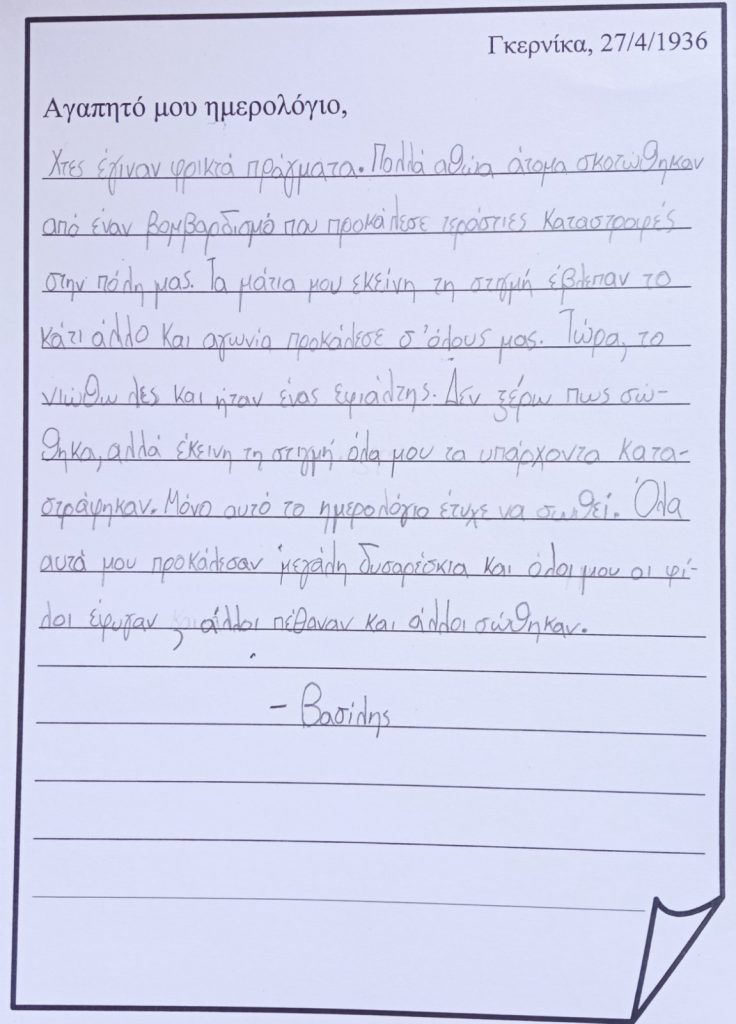 Γκερνίκα, 27/4/1936
Αγαπητό μου ημερολόγιο,
Χτες έγιναν φρικτά πράγματα. Πολλά αθώα άτομα σκοτώθηκαν
από έναν βομβαρδισμό που προκάλεσε τεράστιες καταστροφές
στην πόλη μας. Τα μάτια μου εκείνη τη στιγμή έβλεπαν το
κάτι άλλο και αγωνία προκάλεσε σ'όλους μας. Τώρα, το
νιώθω λες και ήταν ένας εφιάλτης. Δεν ξέρω πως σώ-
θηκα, αλλά έκεινη τη στιγμή όλα μου τα υπάρχοντα κατα-
στράφηκαν. Μόνο αυτό το ημερολόγιο έτυχε να σωθεί. Όλα
αυτά μου προκάλεσαν μεγάλη δυσαρέσκια και όλοι μου οι φί-
λοι έφυγαν, άλλοι πέθαναν και άλλοι σώθηκαν.
- Βασίλης